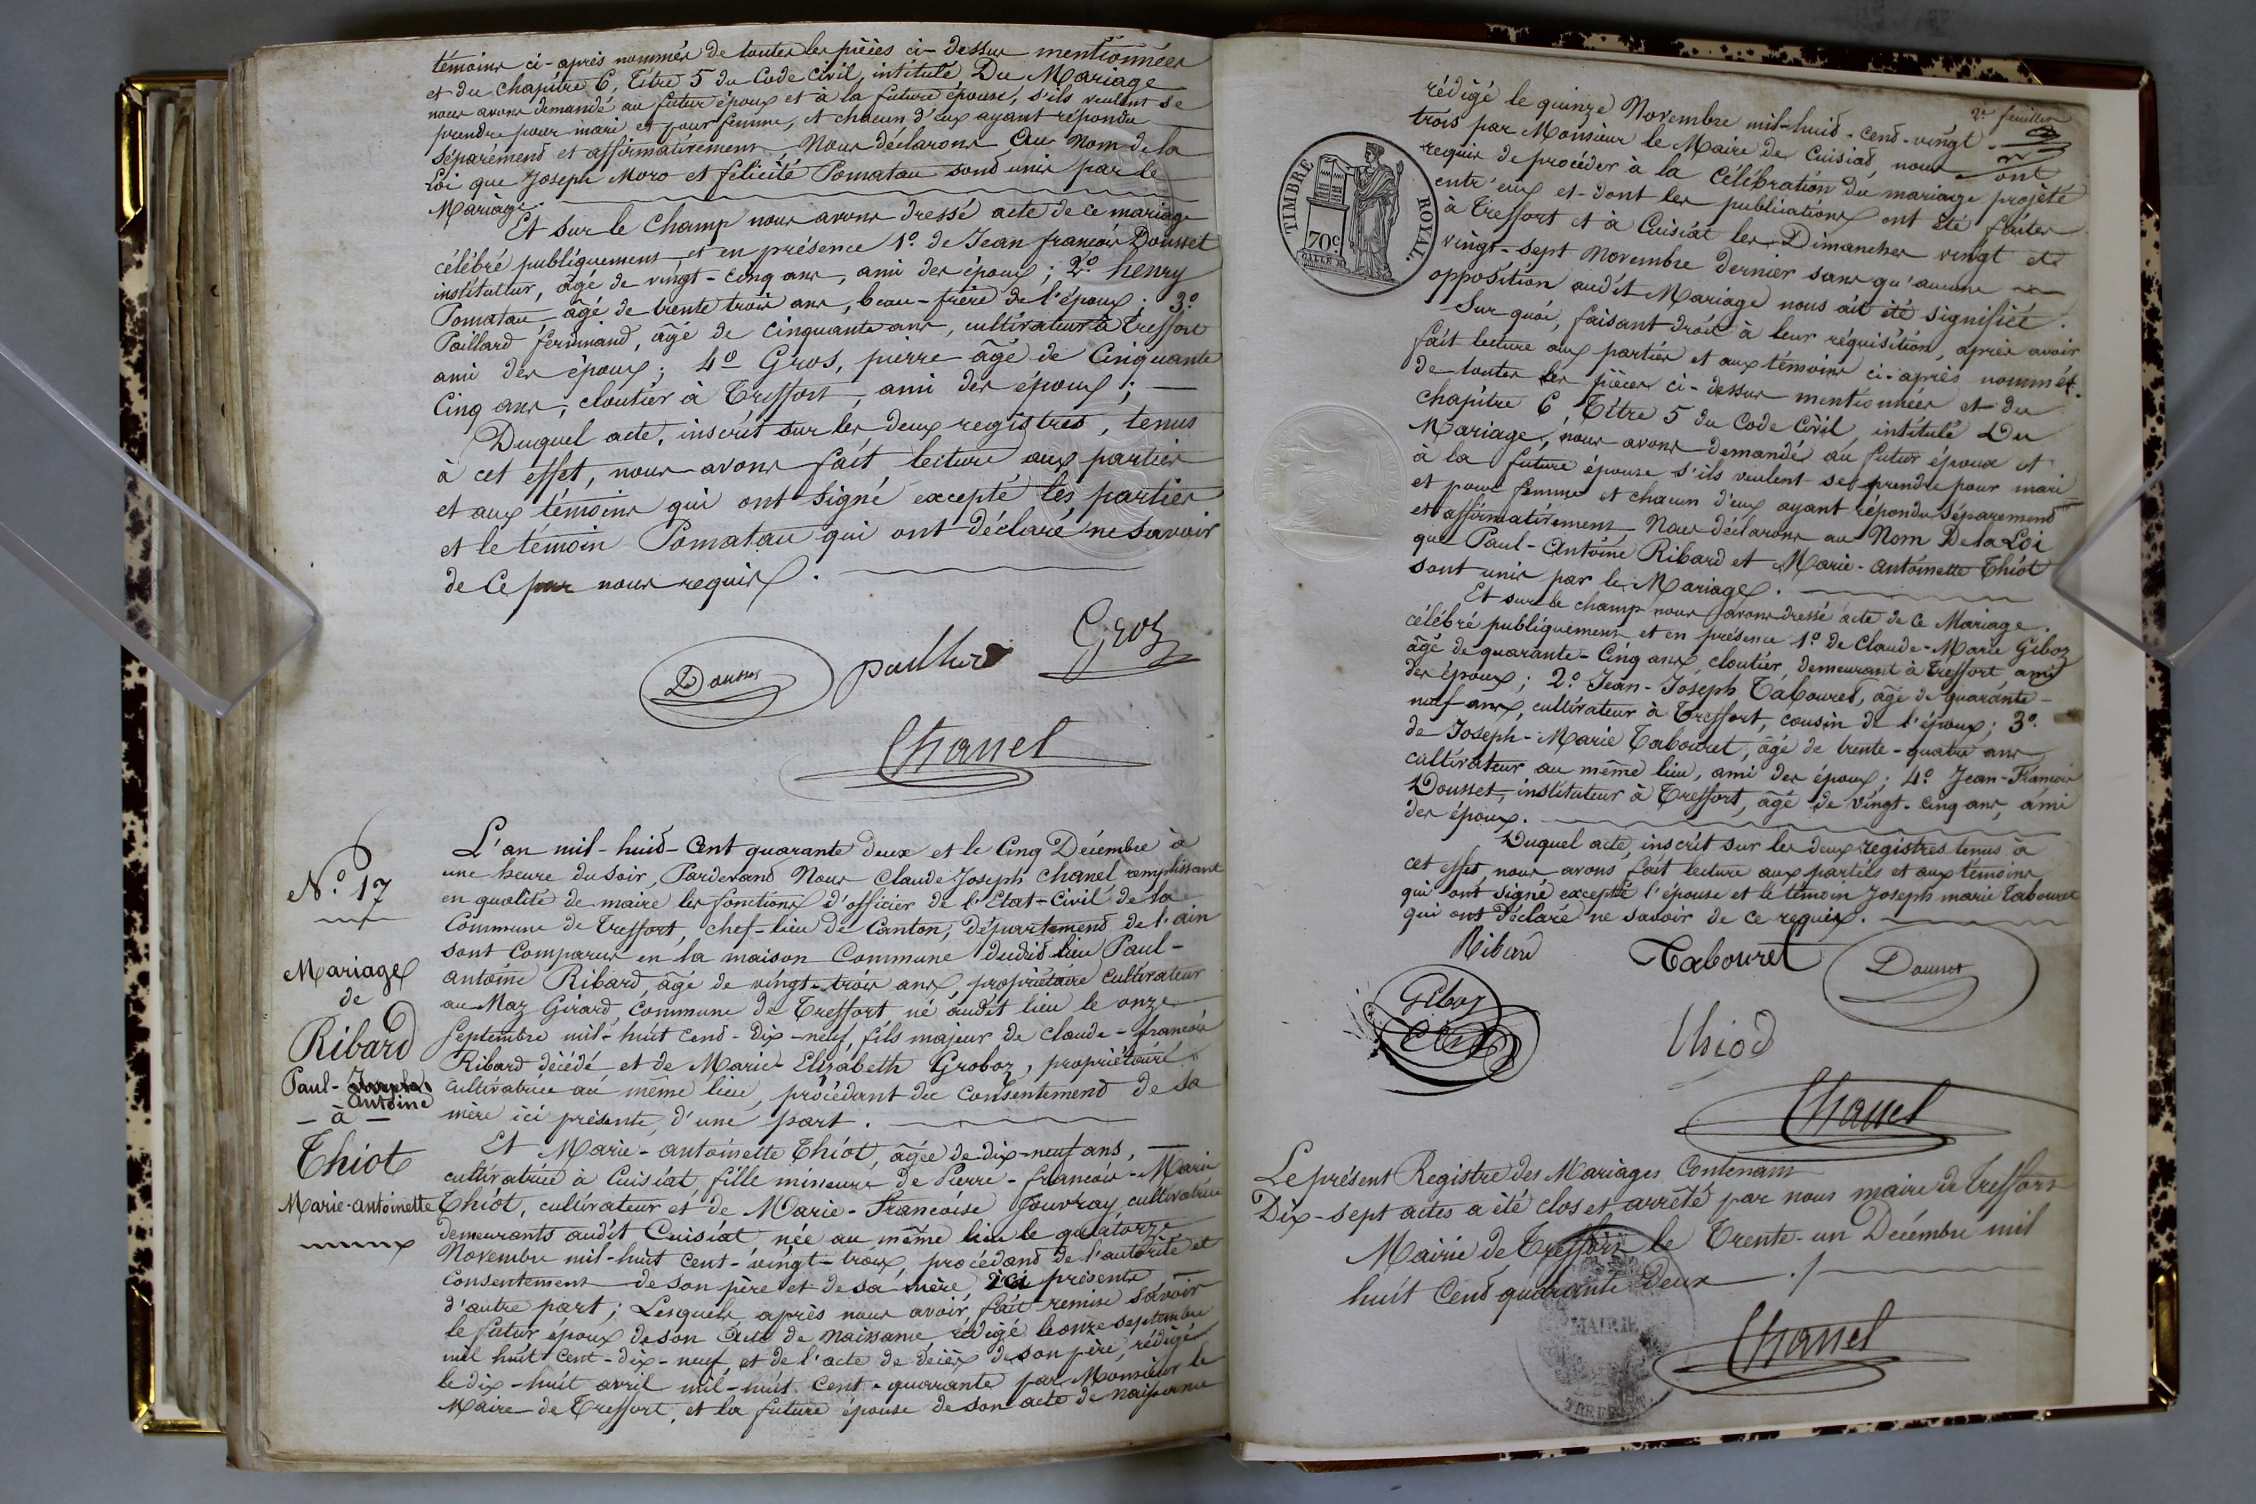 témoins ci-après nommés de toutes les pièces ci-dessus mentionnées
et du Chapitre 6, Titre 5 du Code Civil, intitulé Du Mariage
nous avons demandé au futur époux et à la future épouse, s'ils veulent se
prendre pour mari et pour femme, et chacun d'eux ayant répondu
séparément et affirmativement, Nous déclarons Au Nom de la
Loi que Joseph Moro et félicité Pomatau sont unis par le
Mariage.
Et sur le Champ nous avons dressé acte de ce mariage
célébré publiquement, et en présence 1º de Jean françois Dousset
instituteur, âgé de vingt-cinq ans, ami des époux; 2º henry
Pomatau âgé de trente trois ans, beau-frère de l'époux; 3º
Paillard ferdinand, âgé de cinquante ans, cultivateur à Treffort
ami des époux; 4º Gros, pierre âgé de Cinquante
Cinq ans, cloutier à Treffort, ami des époux;
Duquel acte, inscrit sur les deux registres, tenus
à cet effet, nous avons fait lecture aux parties
et aux témoins qui ont signé excepté les parties
et le témoin Pomatau qui ont déclaré ne savoir
de ce par nous requis.
Dousset Paillard Gros
Chanel
N.º 17
Mariage
de
Ribard
Paul-Joseph
Antoine
- à -
Thiot
Marie-Antoinette
L'an mil-huit-Cent quarante deux et le Cinq Décembre à
une heure du soir, Pardevant Nous Claude Joseph Chanel remplissant
en qualité de maire les fonctions d'officier de l'Etat-Civil de la
Commune de Treffort, chef-lieu de Canton, département de l'ain
sont Comparus en la maison Commune dudit lieu Paul-
antoine Ribard, âgé de vingt-trois ans, propriétaire cultivateur
au Maz Girard, Commune de Treffort né audit lieu le onze
Septembre mil-huit cent-dix-neuf, fils majeur de claude-françois
Ribard décédé et de Marie Elizabeth Groboz, propriétaire
cultivatrice au même lieu, procédant du Consentement de sa
mère ici présente, d'une part.
Et Marie-antoinette Thiot, âgée de dix-neuf ans,
cultivatrice à Cuisiat, fille mineure de Pierre-françois-Marie
Thiot, cultivateur et de Marie-Françoise Jouvray cultivatrice
demeurants audit Cuisiat, née au même lieu le quatorze
Novembre mil-huit cent-vingt-trois, procédant de l'autorité et
Consentement de son père et de sa mère, ici présents
d'autre part; Lesquels, après nous avoir fait remise savoir
le futur époux de son acte de Naissance rédigé le onze septembre
mil huit cent-dix-neuf, et de l'acte de décès de son père, rédigé
le dix-huit avril mil-huit cent-quarante par Monsieur le
Maire de Treffort, et la future épouse de son acte de naissance
2e feuillet
TIMBRE ROYAL.
70c
rédigé le quinze Novembre mil-huit-cent-vingt
trois par Monsieur le Maire de Cuisiat, nous ont
requis de procéder à la Célébration du mariage projeté
entr'eux et dont les publications ont été faites
à Treffort et à Cuisiat les Dimanches vingt et
vingt-sept Novembre dernier sans qu'aucune
opposition audit Mariage nous ait été signifiée.
Sur quoi, faisant droit à leur réquisition, après avoir
fait lecture aux parties et aux témoins ci-après nommés
de toutes les pièces ci-dessus mentionnées et du
Chapitre 6, Titre 5 du Code Civil, intitulé Du
Mariage, nous avons demandé au futur époux et
à la future épouse s'ils veulent se prendre pour mari
et pour femme et chacun d'eux ayant répondu séparement
et affirmativement, Nous déclarons au Nom De la Loi
que Paul-Antoine Ribard et Marie-Antoinette Thiot
sont unis par le Mariage.
Et sur le champ nous avons dressé acte de ce Mariage.
célébré publiquement et en présence 1º de Claude-Marie Giboz
âgé de quarante-Cinq ans, cloutier, demeurant à Treffort, ami
des époux; 2º Jean-Joseph Tabouret, âgé de quarante-
neuf ans, cultivateur à Treffort, cousin de l'époux; 3º
de Joseph-Marie Tabouret, âgé de trente-quatre ans
cultivateur au même lieu, ami des époux; 4º Jean-François
Dousset, instituteur à Treffort, âgé de vingt-cinq ans, ami
des époux.
Duquel acte, inscrit sur les deux registres tenus à
cet effet, nous avons fait lecture aux parties et aux témoins
qui ont signé excepté l'épouse et le témoin Joseph marie Tabouret
qui ont déclaré ne savoir de ce requis.
Ribard Tabouret Dousset
Giboz
Thiod
Chanel
Le présent Registre des Mariages Contenant
Dix-sept actes a été clos et arrêté par nous maire de Treffort
Mairie de Treffort le Trente-un Décembre mil
huit Cent quarante Deux ./
MAIRIE
Chanel